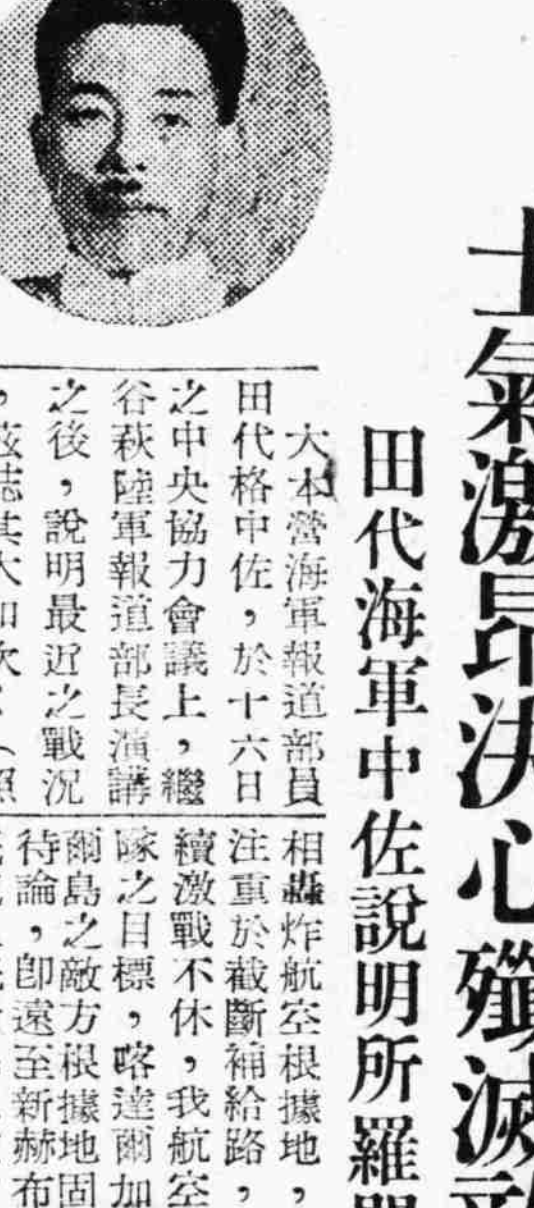 士氣激昂決心殲滅
田代海軍中佐說明所羅
大本營海軍報道部員
田代格中佐，於十六日
之中央協力會議上，繼
谷萩陸軍報道部長演講
之後，說明最近之戰況
，茲誌其大如次：（照
相轟炸航空根據地，
注重於截斷補給路，
續激戰不休，我航空
隊之目標，喀達爾加
爾島之敵方根據地固
待論，卽遠至新赫布